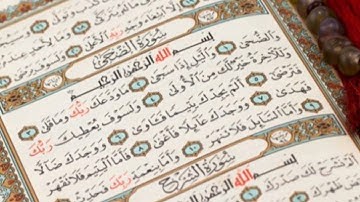 سُورَةُ الضُّحَىٰ
بِسْمِ اللَّهِ الرَّحْمَٰنِ الرَّحِيمِ
وَالضُّحَىٰ ١ وَاللَّيْلِ إِذَا سَجَىٰ ٢ مَا وَدَّعَكَ رَبُّكَ وَمَا قَلَىٰ ٣
وَلَلْآخِرَةُ خَيْرٌ لَّكَ مِنَ الْأُولَىٰ ٤ وَلَسَوْفَ يُعْطِيكَ رَبُّكَ
فَتَرْضَىٰ ٥ أَلَمْ يَجِدْكَ يَتِيمًا فَآوَىٰ ٦ وَوَجَدَكَ ضَالًّا
فَهَدَىٰ ٧ وَوَجَدَكَ عَائِلًا فَأَغْنَىٰ ٨ فَأَمَّا الْيَتِيمَ فَلَا تَقْهَرْ ٩
وَأَمَّا السَّائِلَ فَلَا تَنْهَرْ ١٠ وَأَمَّا بِنِعْمَةِ رَبِّكَ فَحَدِّثْ
سُورَةُ الشَّرْحِ
بِسْمِ اللَّهِ الرَّحْمَٰنِ
أَلَمْ نَشْرَحْ لَكَ صَدْرَكَ